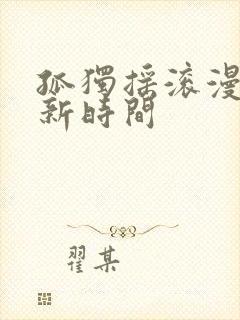 孤獨搖滾漫
新時間
翟某